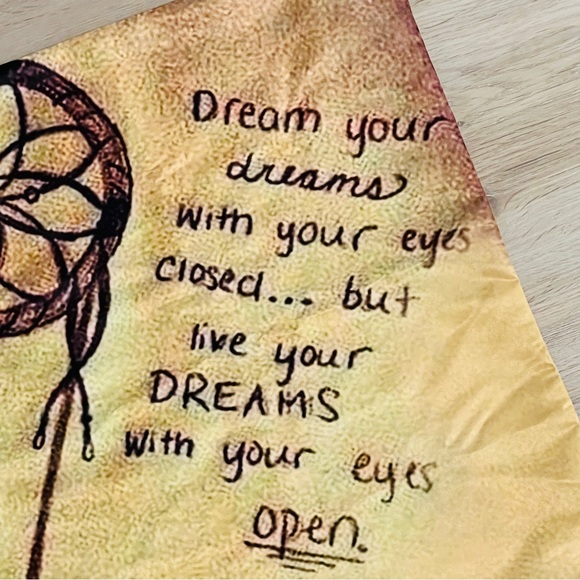 Dream your
dreams
with your eyes
closed... but
live your
DREAMS
with your eyes
open.